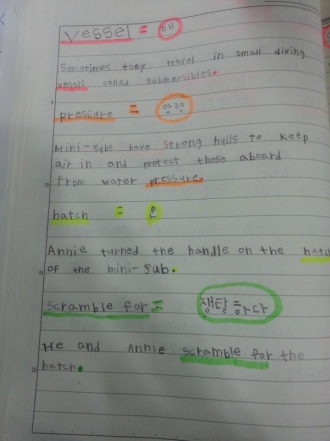 vessel = 배
Sometimes they travel in small diving
vessels called submersibles.
pressure = 압력
Mini-subs have strong hulls to keep
air in and protect those aboard
from water pressure.
hatch = 문
Annie turned the handle on the hatch
of the mini-sub.
scramble for = 쟁탈하다
He and Annie scramble for the
hatch.